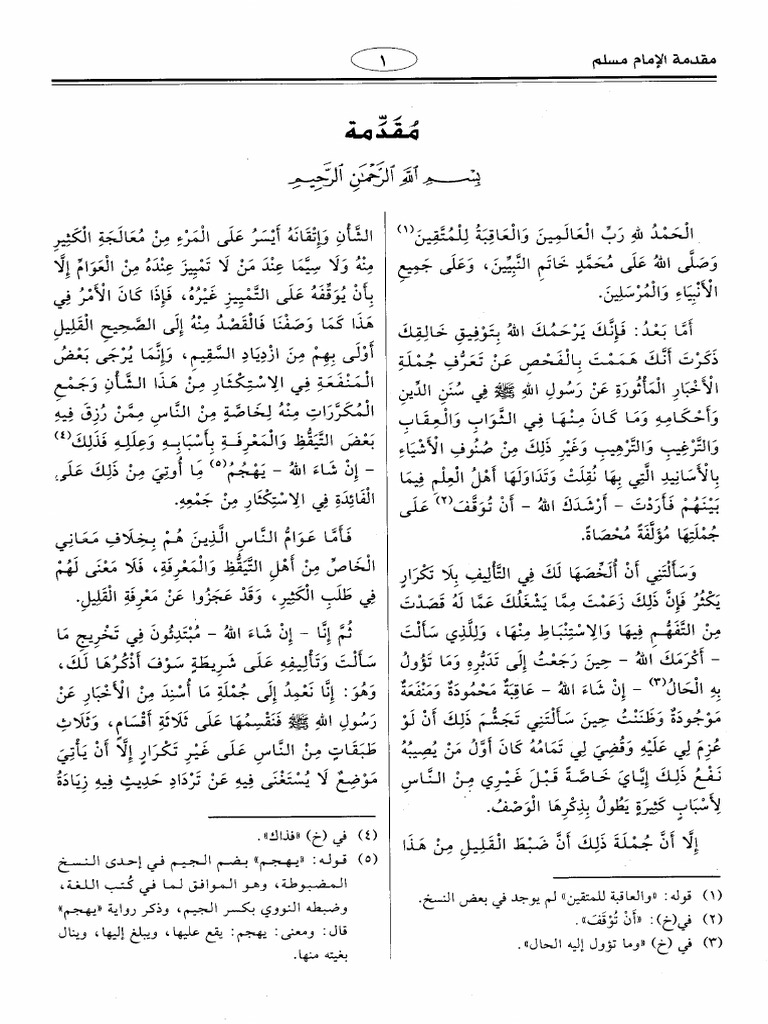 مقدمة الإمام مسلم
١
مُقَدِّمة
بِسْمِ اللَّهِ الرَّحْمَٰنِ الرَّحِيمِ
الْحَمْدُ لِلهِ رَبِّ الْعَالَمِينَ وَالْعَاقِبَةُ لِلْمُتَّقِينَ(١)
وَصَلَّى اللهُ عَلَى مُحَمَّدٍ خَاتَمِ النَّبِيِّينَ، وَعَلَى جَمِيعِ
الْأَنْبِيَاءِ وَالْمُرْسَلِينَ.
أَمَّا بَعْدُ: فَإِنَّكَ يَرْحَمُكَ اللهُ بِتَوْفِيقِ خَالِقِكَ
ذَكَرْتَ أَنَّكَ هَمَمْتَ بِالْفَحْصِ عَنْ تَعَرُّفِ جُمْلَةِ
الْأَخْبَارِ الْمَأْثُورَةِ عَنْ رَسُولِ اللهِ ﷺ فِي سُنَنِ الدِّينِ
وَأَحْكَامِهِ وَمَا كَانَ مِنْهَا فِي الثَّوَابِ وَالْعِقَابِ
وَالتَّرْغِيبِ وَالتَّرْهِيبِ وَغَيْرِ ذَلِكَ مِنْ صُنُوفِ الْأَشْيَاءِ
بِالْأَسَانِيدِ الَّتِي بِهَا نُقِلَتْ وَتَدَاوَلَهَا أَهْلُ الْعِلْمِ فِيمَا
بَيْنَهُمْ فَأَرَدْتَ - أَرْشَدَكَ اللهُ - أَنْ تُوَقَّفَ(٢) عَلَى
جُمْلَتِهَا مُؤَلَّفَةً مُحْصَاةً.
وَسَأَلْتَنِي أَنْ أُلَخِّصَهَا لَكَ فِي التَّأْلِيفِ بِلَا تَكْرَارٍ
يَكْثُرُ فَإِنَّ ذَلِكَ زَعَمْتَ مِمَّا يَشْغَلُكَ عَمَّا لَهُ قَصَدْتَ
مِنَ التَّفَهُّمِ فِيهَا وَالِاسْتِنْبَاطِ مِنْهَا، وَلِلَّذِي سَأَلْتَ
- أَكْرَمَكَ اللهُ - حِينَ رَجَعْتُ إِلَى تَدَبُّرِهِ وَمَا تَؤُولُ
بِهِ الْحَالُ(٣) - إِنْ شَاءَ اللهُ - عَاقِبَةٌ مَحْمُودَةٌ وَمَنْفَعَةٌ
مَوْجُودَةٌ وَظَنَنْتُ حِينَ سَأَلْتَنِي تَجَشُّمَ ذَلِكَ أَنْ لَوْ
عُزِمَ لِي عَلَيْهِ وَقُضِيَ لِي تَمَامُهُ كَانَ أَوَّلُ مَنْ يُصِيبُهُ
نَفْعُ ذَلِكَ إِيَّايَ خَاصَّةً قَبْلَ غَيْرِي مِنَ النَّاسِ
لِأَسْبَابٍ كَثِيرَةٍ يَطُولُ بِذِكْرِهَا الْوَصْفُ.
إِلَّا أَنَّ جُمْلَةَ ذَلِكَ أَنَّ ضَبْطَ الْقَلِيلِ مِنْ هَذَا
(١) قوله: «والعاقبة للمتقين» لم يوجد في بعض النسخ.
(٢) في(خ): «أَنْ تُوْقَفَ».
(٣) في (خ) «وما تؤول إليه الحال».
الشَّأْنِ وَإِتْقَانَهُ أَيْسَرُ عَلَى الْمَرْءِ مِنْ مُعَالَجَةِ الْكَثِيرِ
مِنْهُ وَلَا سِيَّمَا عِنْدَ مَنْ لَا تَمْيِيزَ عِنْدَهُ مِنْ الْعَوَامِّ إِلَّا
بِأَنْ يُوَقِّفَهُ عَلَى التَّمْيِيزِ غَيْرُهُ، فَإِذَا كَانَ الْأَمْرُ فِي
هَذَا كَمَا وَصَفْنَا فَالْقَصْدُ مِنْهُ إِلَى الصَّحِيحِ الْقَلِيلِ
أَوْلَى بِهِمْ مِنَ ازْدِيَادِ السَّقِيمِ، وَإِنَّمَا يُرْجَى بَعْضُ
الْمَنْفَعَةِ فِي الِاسْتِكْثَارِ مِنْ هَذَا الشَّأْنِ وَجَمْعِ
الْمُكَرَّرَاتِ مِنْهُ لِخَاصَّةٍ مِنَ النَّاسِ مِمَّنْ رُزِقَ فِيهِ
بَعْضَ التَّيَقُّظِ وَالْمَعْرِفَةِ بِأَسْبَابِهِ وَعِلَلِهِ فَذَلِكَ(٤)
- إِنْ شَاءَ اللهُ - يَهْجُمُ(٥) مِا أُوتِيَ مِنْ ذَلِكَ عَلَى
الْفَائِدَةِ فِي الِاسْتِكْثَارِ مِنْ جَمْعِهِ.
فَأَمَّا عَوَامُّ النَّاسِ الَّذِينَ هُمْ بِخِلَافِ مَعَانِي
الْخَاصِّ مِنْ أَهْلِ التَّيَقُّظِ وَالْمَعْرِفَةِ، فَلَا مَعْنَى لَهُمْ
فِي طَلَبِ الْكَثِيرِ، وَقَدْ عَجَزُوا عَنْ مَعْرِفَةِ الْقَلِيلِ.
ثُمَّ إِنَّا - إِنْ شَاءَ اللهُ - مُبْتَدِئُونَ فِي تَخْرِيجِ مَا
سَأَلْتَ وَتَأْلِيفِهِ عَلَى شَرِيطَةٍ سَوْفَ أَذْكُرُهَا لَكَ،
وَهُوَ: إِنَّا نَعْمِدُ إِلَى جُمْلَةِ مَا أُسْنِدَ مِنَ الْأَخْبَارِ عَنْ
رَسُولِ اللهِ ﷺ فَنَقْسِمُهَا عَلَى ثَلَاثَةِ أَقْسَامٍ، وَثَلَاثِ
طَبَقَاتٍ مِنَ النَّاسِ عَلَى غَيْرِ تَكْرَارٍ إِلَّا أَنْ يَأْتِيَ
مَوْضِعٌ لَا يُسْتَغْنَى فِيهِ عَنْ تَرْدَادِ حَدِيثٍ فِيهِ زِيَادَةُ
(٤) في (خ) «فذاك».
(٥) قوله: «يهجم» بضم الجيم في إحدى النسخ
المضبوطة، وهو الموافق لما في كُتب اللغة،
وضبطه النووي بكسر الجيم، وذكر رواية «يهجم»
قال: ومعنى: يهجم: يقع عليها، ويبلغ إليها، وينال
بغيته منها.